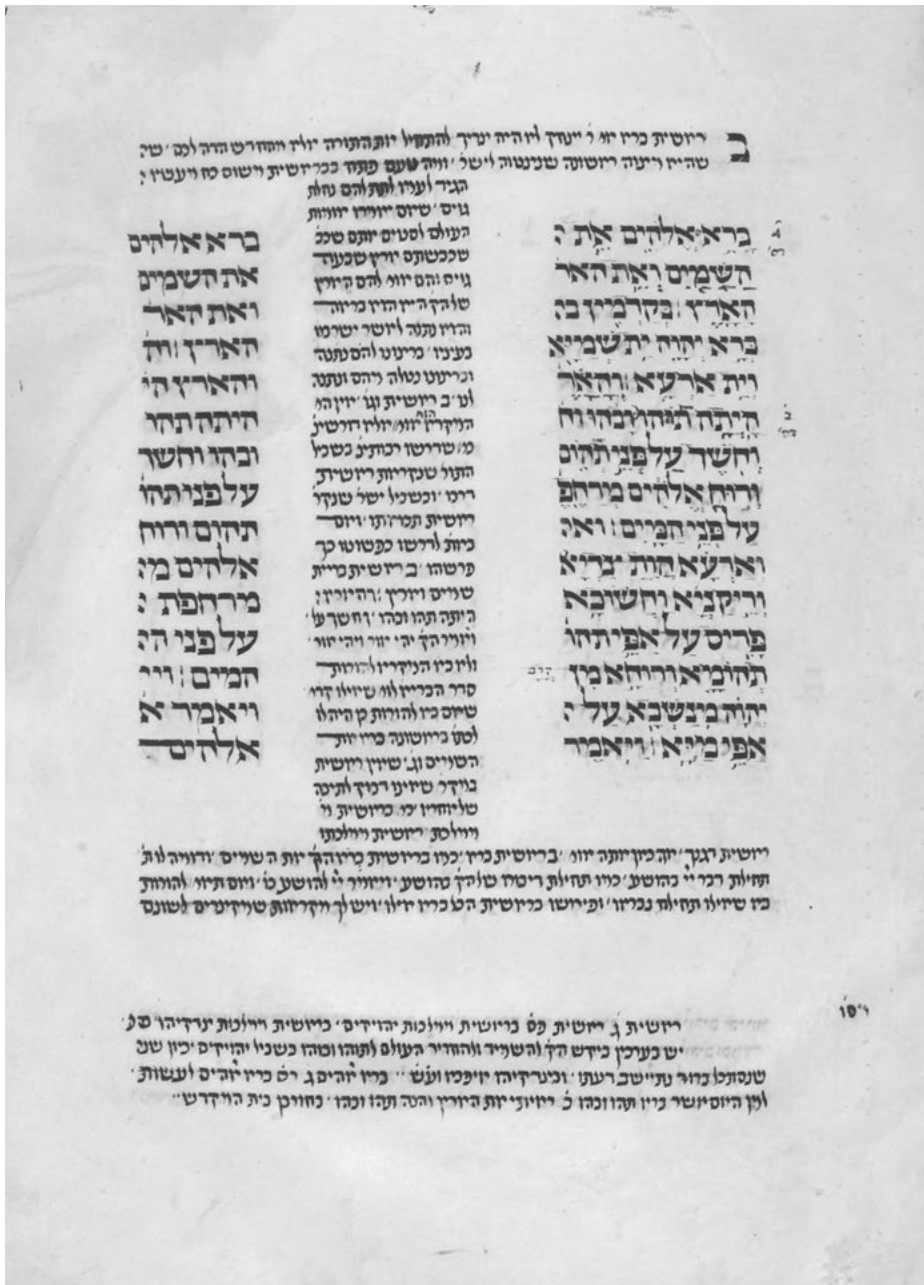 ב ראשית ברא אמ׳ ר׳ יצחק לא היה צריך להתחיל את התורה אלא מהחדש הזה לכם ׳ שה
שהיא מצוה ראשונה שנצטוו ישר׳ ומה טעם פתח בבראשית משום כח מעשיו
בָּרָא אֱלֹהִים אֵת ה
הַשָּׁמַיִם וְאֵת האר
הָאָרֶץ׃ בְּקַדְמִין ב
בְּרָא יְהֹוָה יָת שְׁמַיָּא
וְיָת אַרְעָא׃ וְהָאָרֶ
הָיְתָה תֹהוּ וָבֹהוּ וח
וְחֹשֶׁךְ עַל פְּנֵי תְהוֹם
וְרוּחַ אֱלֹהִים מְרַחֶפֶ
עַל פְּנֵי הַמָּיִם׃ ואר
וְאַרְעָא הֲוָת צָדְיָא
וְרֵיקַנְיָא וַחֲשׁוֹכָא
פָּרִיס עַל אַפֵּי תהו
תְהוֹמָא וְרוּחָא מִן קֳדָם
יְהֹוָה מְנַשְּׁבָא עַל
אַפֵּי מַיָּא׃ וַיֹּאמֶר
הגיד לעמו לתת להם נחלת
גוים ׳ שאם יאמרו אומות
העולם לסטים אתם שככ
שכבשתם ארץ שבעה
גוים והם אומ׳ להם הארץ
של הק׳ היא הוא בראה
והוא נתנה לאשר ישר
בעיניו ׳ ברצונו להם נתנה
וברצונו נטלה מהם ונתנה
לנו ׳ ב ראשית וגו׳ אין המ
המקרא הזה אומ׳ אלא דורשיני
כמ׳ שדרשו רבותינ׳ בשביל
התור׳ שנקראת ראשית
דרכו ׳ ובשביל ישר׳ שנקר׳
ראשית תבואתו ׳ ואם
באת לדרשו כפשוטו כך
פרשהו ׳ ב ראשית בריית
שמים וארץ ׳ והארץ
היתה תהו ובהו ׳ וחשך על
ויאמר הק׳ יהי אור ויהי אור ׳
ולא בא המקרא להורות
סדר הבריאה לומ׳ שאילו קדמו
שאם בא להורות כן היה לו
לכתו׳ בראשונה ברא את
השמים וג׳ שאין ראשית
במקר׳ שאינו דבוק לתיבה
שלאחריו ׳ כמ׳ בראשית מ
ממלכת ׳ ראשית ממלכתו
ברא אלהים
את השמים
ואת האר
הארץ׃ וה
והארץ הי
היתה תהו
ובהו וחשך
על פני תהו
תהום ורוח
אלהים מ
מרחפת
על פני ה
המים׃ ויי
ויאמר א
אלהים
ראשית דגנך ׳ אף כאן אתה אומ׳ ׳ בראשית ברא ׳ כמו בראשית ברוא הק׳ את השמים ׳ ודומה לזה
תחילת דבר יי׳ בהושע ׳ כמו תחילת דיבורו של הק׳ בהושע ׳ ויאמר יי׳ להושע ׳ ואם תאמ׳ להורות
בא שאילו תחילה נבראו ׳ ופירושו בראשית הכל ברא אילו ׳ ויש לך מקראות שמקצרים לשונם
ראשית ג׳ ראשית בראשית ממלכות יהויקים ׳ בראשית ממלכות צדקיהו
יש בערכין ביקש הק׳ להחזיר העולם לתוהו ובוהו בשביל יהויקים כיון
שנסתכל בדור נתיישב דעתו ׳ ברא אלהים ג׳ ברא אלהים לעשות
היום אשר ברא תהו ובהו ב׳ ראיתי את הארץ והנה תהו ובהו ׳ בית המקדש